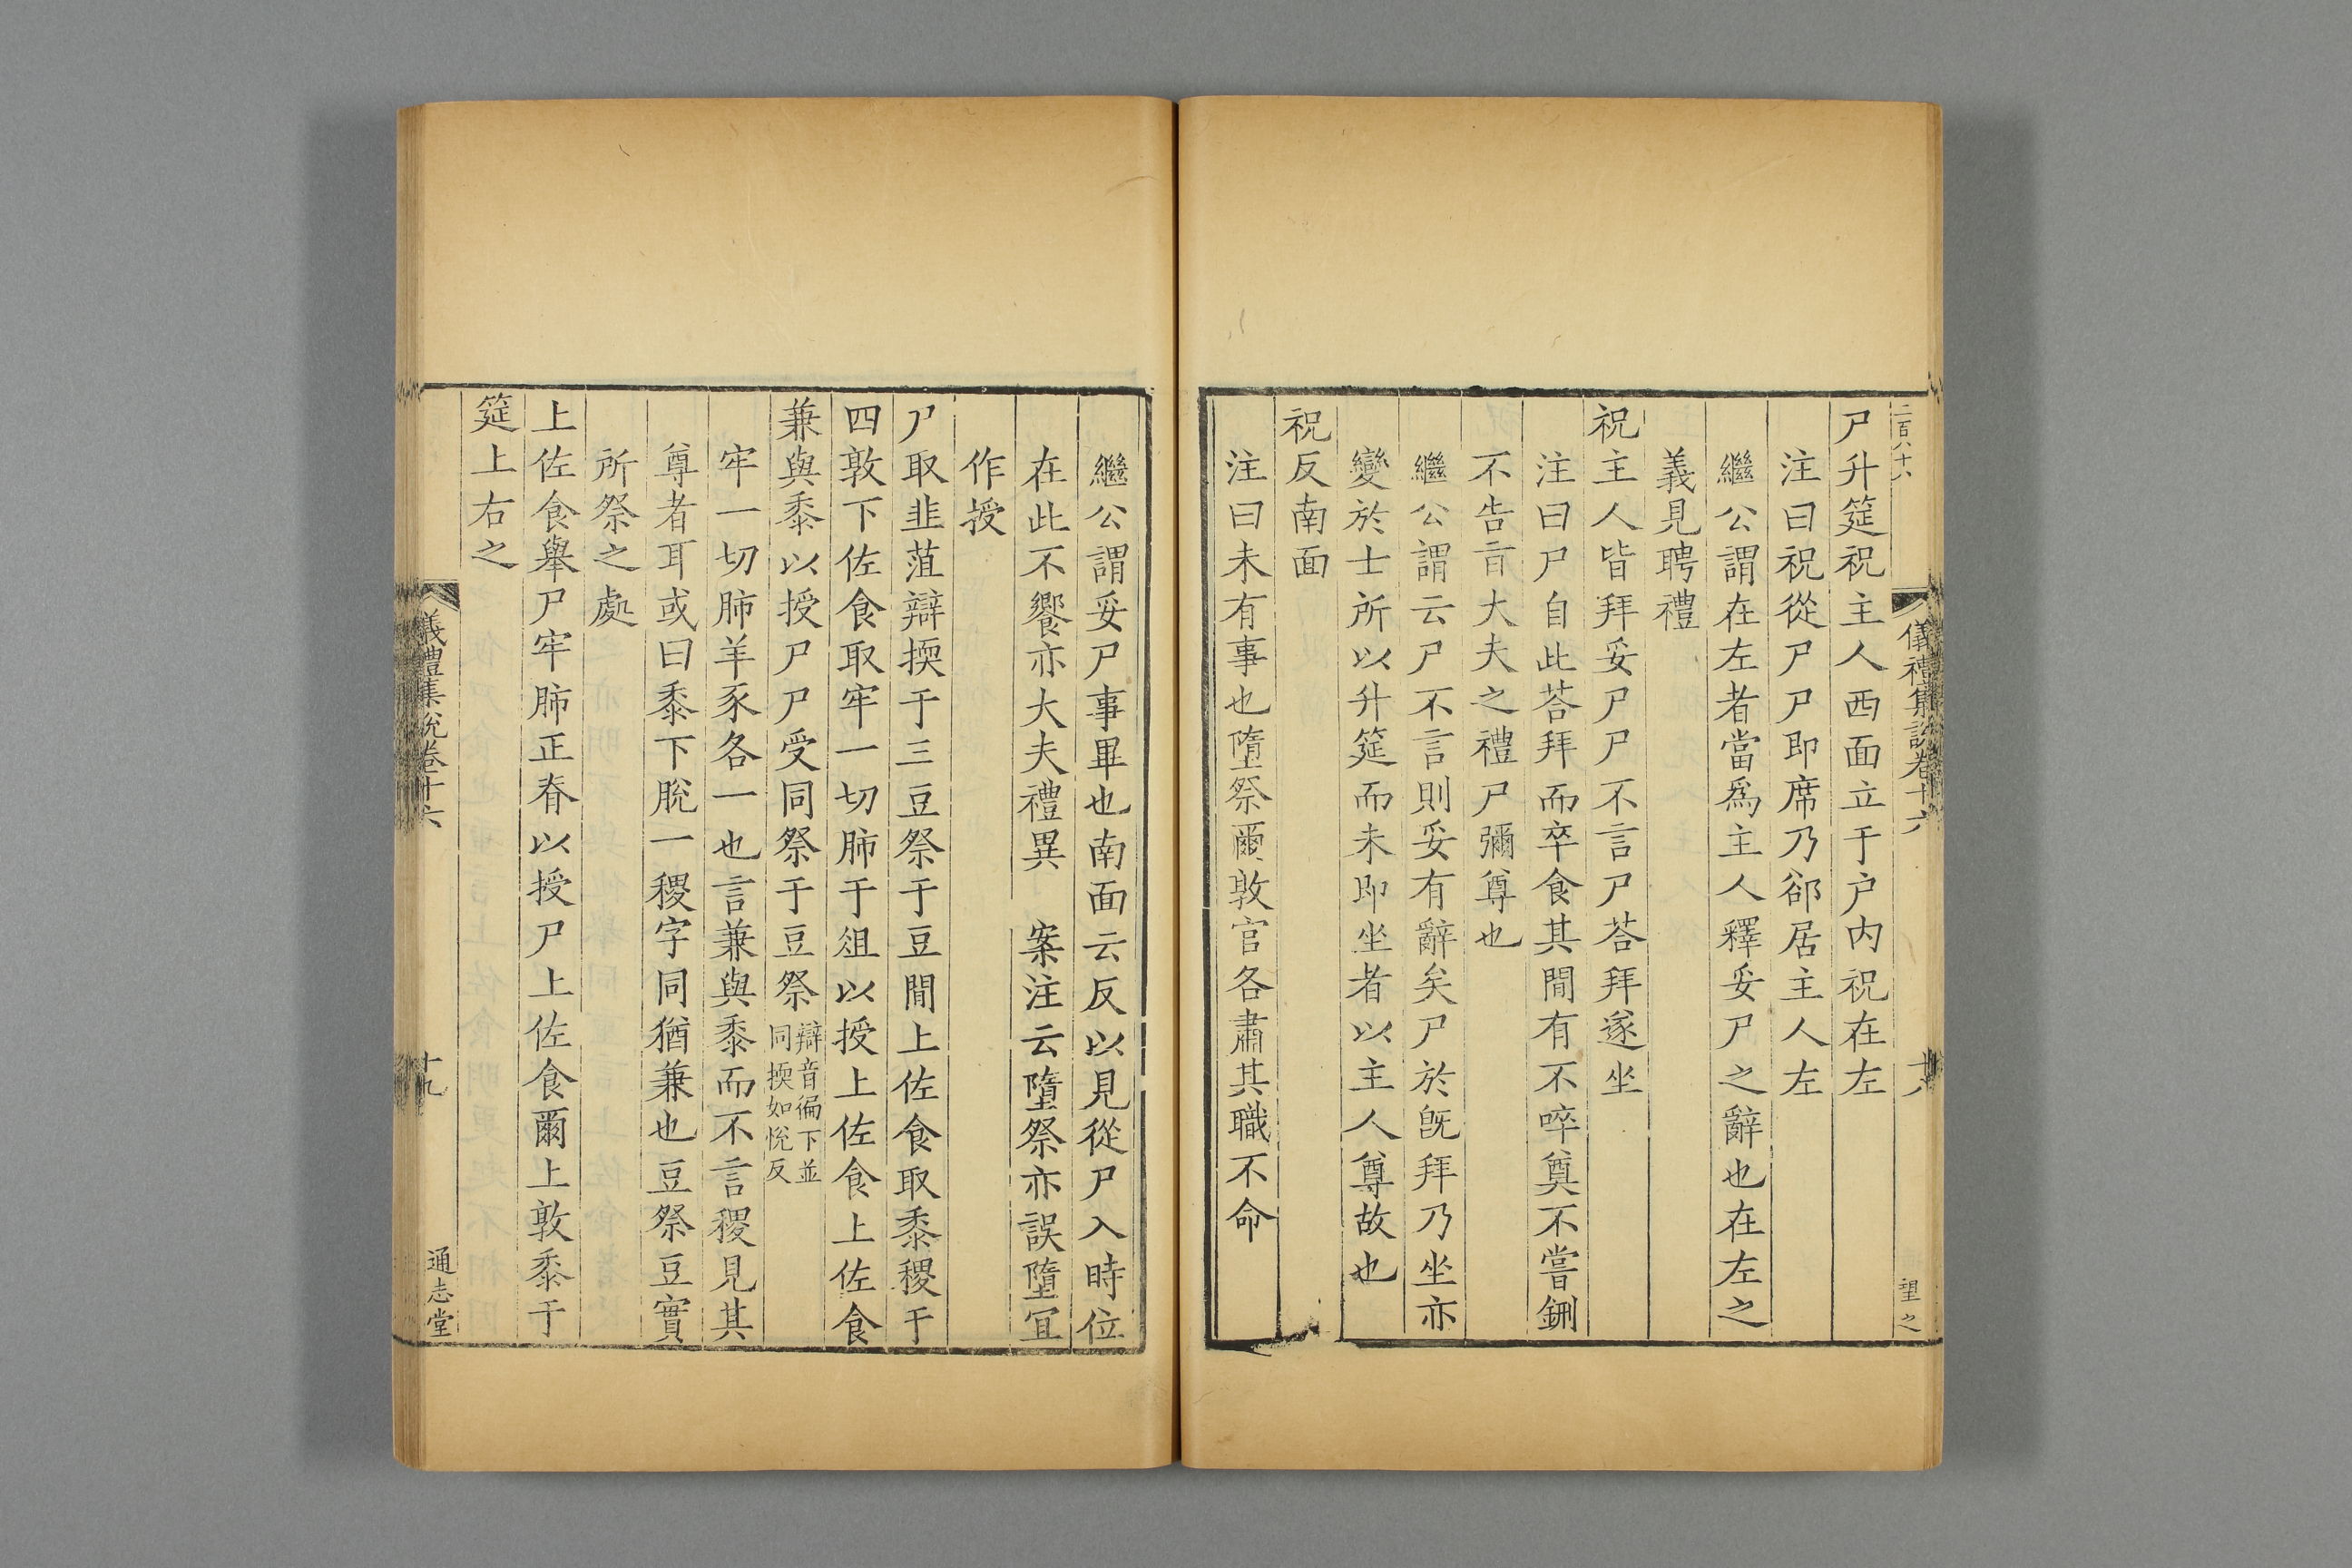 二百八十八
儀禮集說卷十六
十八
望之
尸升筵祝主人西面立于户内祝在左
注曰祝從尸尸即席乃郤居主人左
繼公謂在左者當爲主人釋妥尸之辭也在左之
義見聘禮
祝主人皆拜妥尸尸不言尸荅拜遂坐
注曰尸自此荅拜而卒食其間有不啐奠不嘗鉶
不告旨大夫之禮尸彌尊也
繼公謂云尸不言則妥有辭矣尸於旣拜乃坐亦
變於士所以升筵而未即坐者以主人尊故也
祝反南面
注曰未有事也墮祭爾敦官各肅其職不命
繼公謂妥尸事畢也南面云反以見從尸入時位
在此不饗亦大夫禮異　案注云墮祭亦誤墮宜
作授
尸取韭菹辯擩于三豆祭于豆閒上佐食取黍稷于
四敦下佐食取牢一切肺于俎以授上佐食上佐食
兼與黍以授尸尸受同祭于豆祭辯音徧下並同擩如悅反
牢一切肺羊豕各一也言兼與黍而不言稷見其
尊者耳或曰黍下脫一稷字同猶兼也豆祭豆實
所祭之處
上佐食舉尸牢肺正脊以授尸上佐食爾上敦黍于
筵上右之
儀禮集說卷十六
十九
通志堂